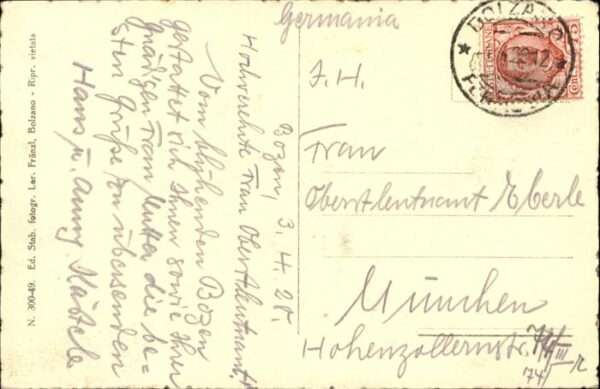 Germania
BOLZANO
Bozen, 3. 4. 28.
Hochverehrte Frau Oberstleutnant!
Vom blühenden Bozen
gestattet sich Ihnen sowie Ihrer
gnädigen Frau Mutter die be-
sten Grüße zu übersenden
Hans u. Anny
I. H.
Frau
Oberstleutnant Eberle
München
Hohenzollernstr.
N. 300-49. Ed. Stab. fotogr. Lor. Fränzl, Bolzano - Ripr. vietata